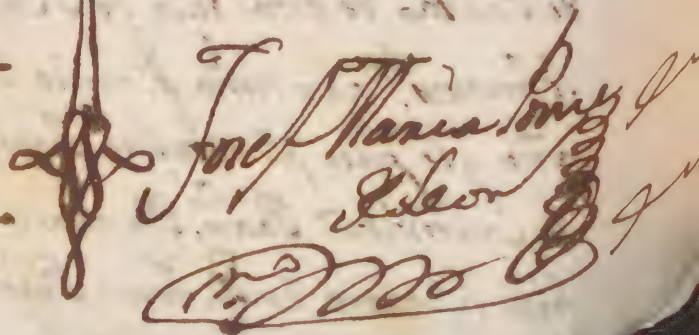 Josef Maria Ponce
de Leon